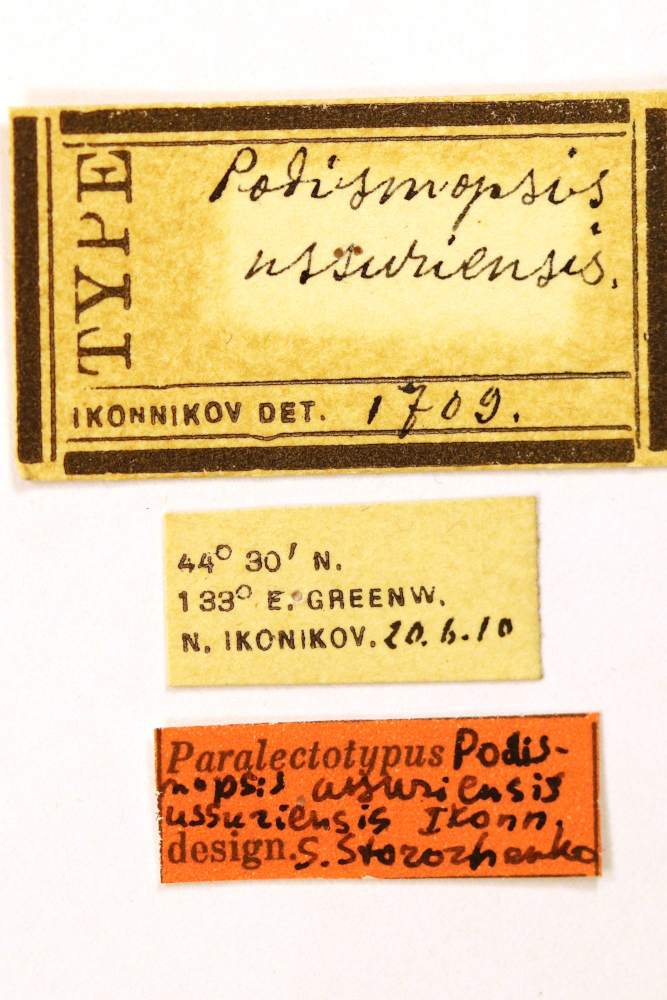 TYPE
Podismopsis
ussuriensis.
IKONNIKOV DET. 1709.
44° 30' N.
133° E. GREENW.
N. IKONIKOV. 20.6.10
Paralectotypus Podis-
mopsis ussuriensis
ussuriensis Ikonn.
design. S. Storozhenko